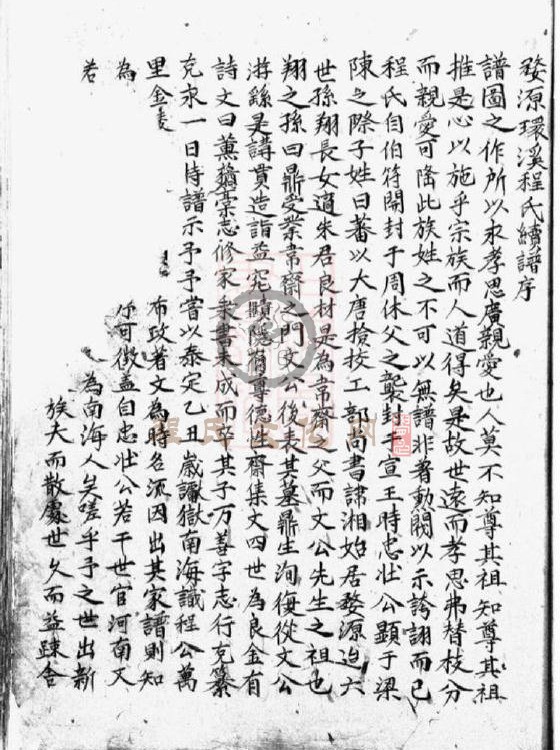 婺源環溪程氏續譜序
譜圖之作所以永孝思廣親愛也人莫不知尊其祖知尊其祖
推是心以施乎宗族而人道得矣是故世遠而孝思弗替枝分
而親愛可隆此族姓之不可以無譜非勲閥以示誇詡而已
程氏自伯符開封于周休父之襲封于宣王時忠壯公顯于梁
陳之際子姓曰蕃以大唐撿校工部尚書諱湘始居婺源迨六
世孫翔長女適朱君良材是為韋齋之父而文公先生之祖也
翔之孫曰鼎受業韋齋之門文公後表其墓鼎生洵復從文公
游繇是講貫造詣益究賾隱有尊德性齋集文四世為良金有
詩文曰薰藁志修家乘書未成而卒其子万善字志行克纂
克承一日持譜示予予嘗以泰定乙丑歲讞獄南海識程公萬
里金 布政著文為時名流因出其家譜則知
為 所可徵盖自忠壯公若干世官河南又
若 為南海人矣嗟乎予之世出新
族夫而散處世久而益踈舍
程氏文化网